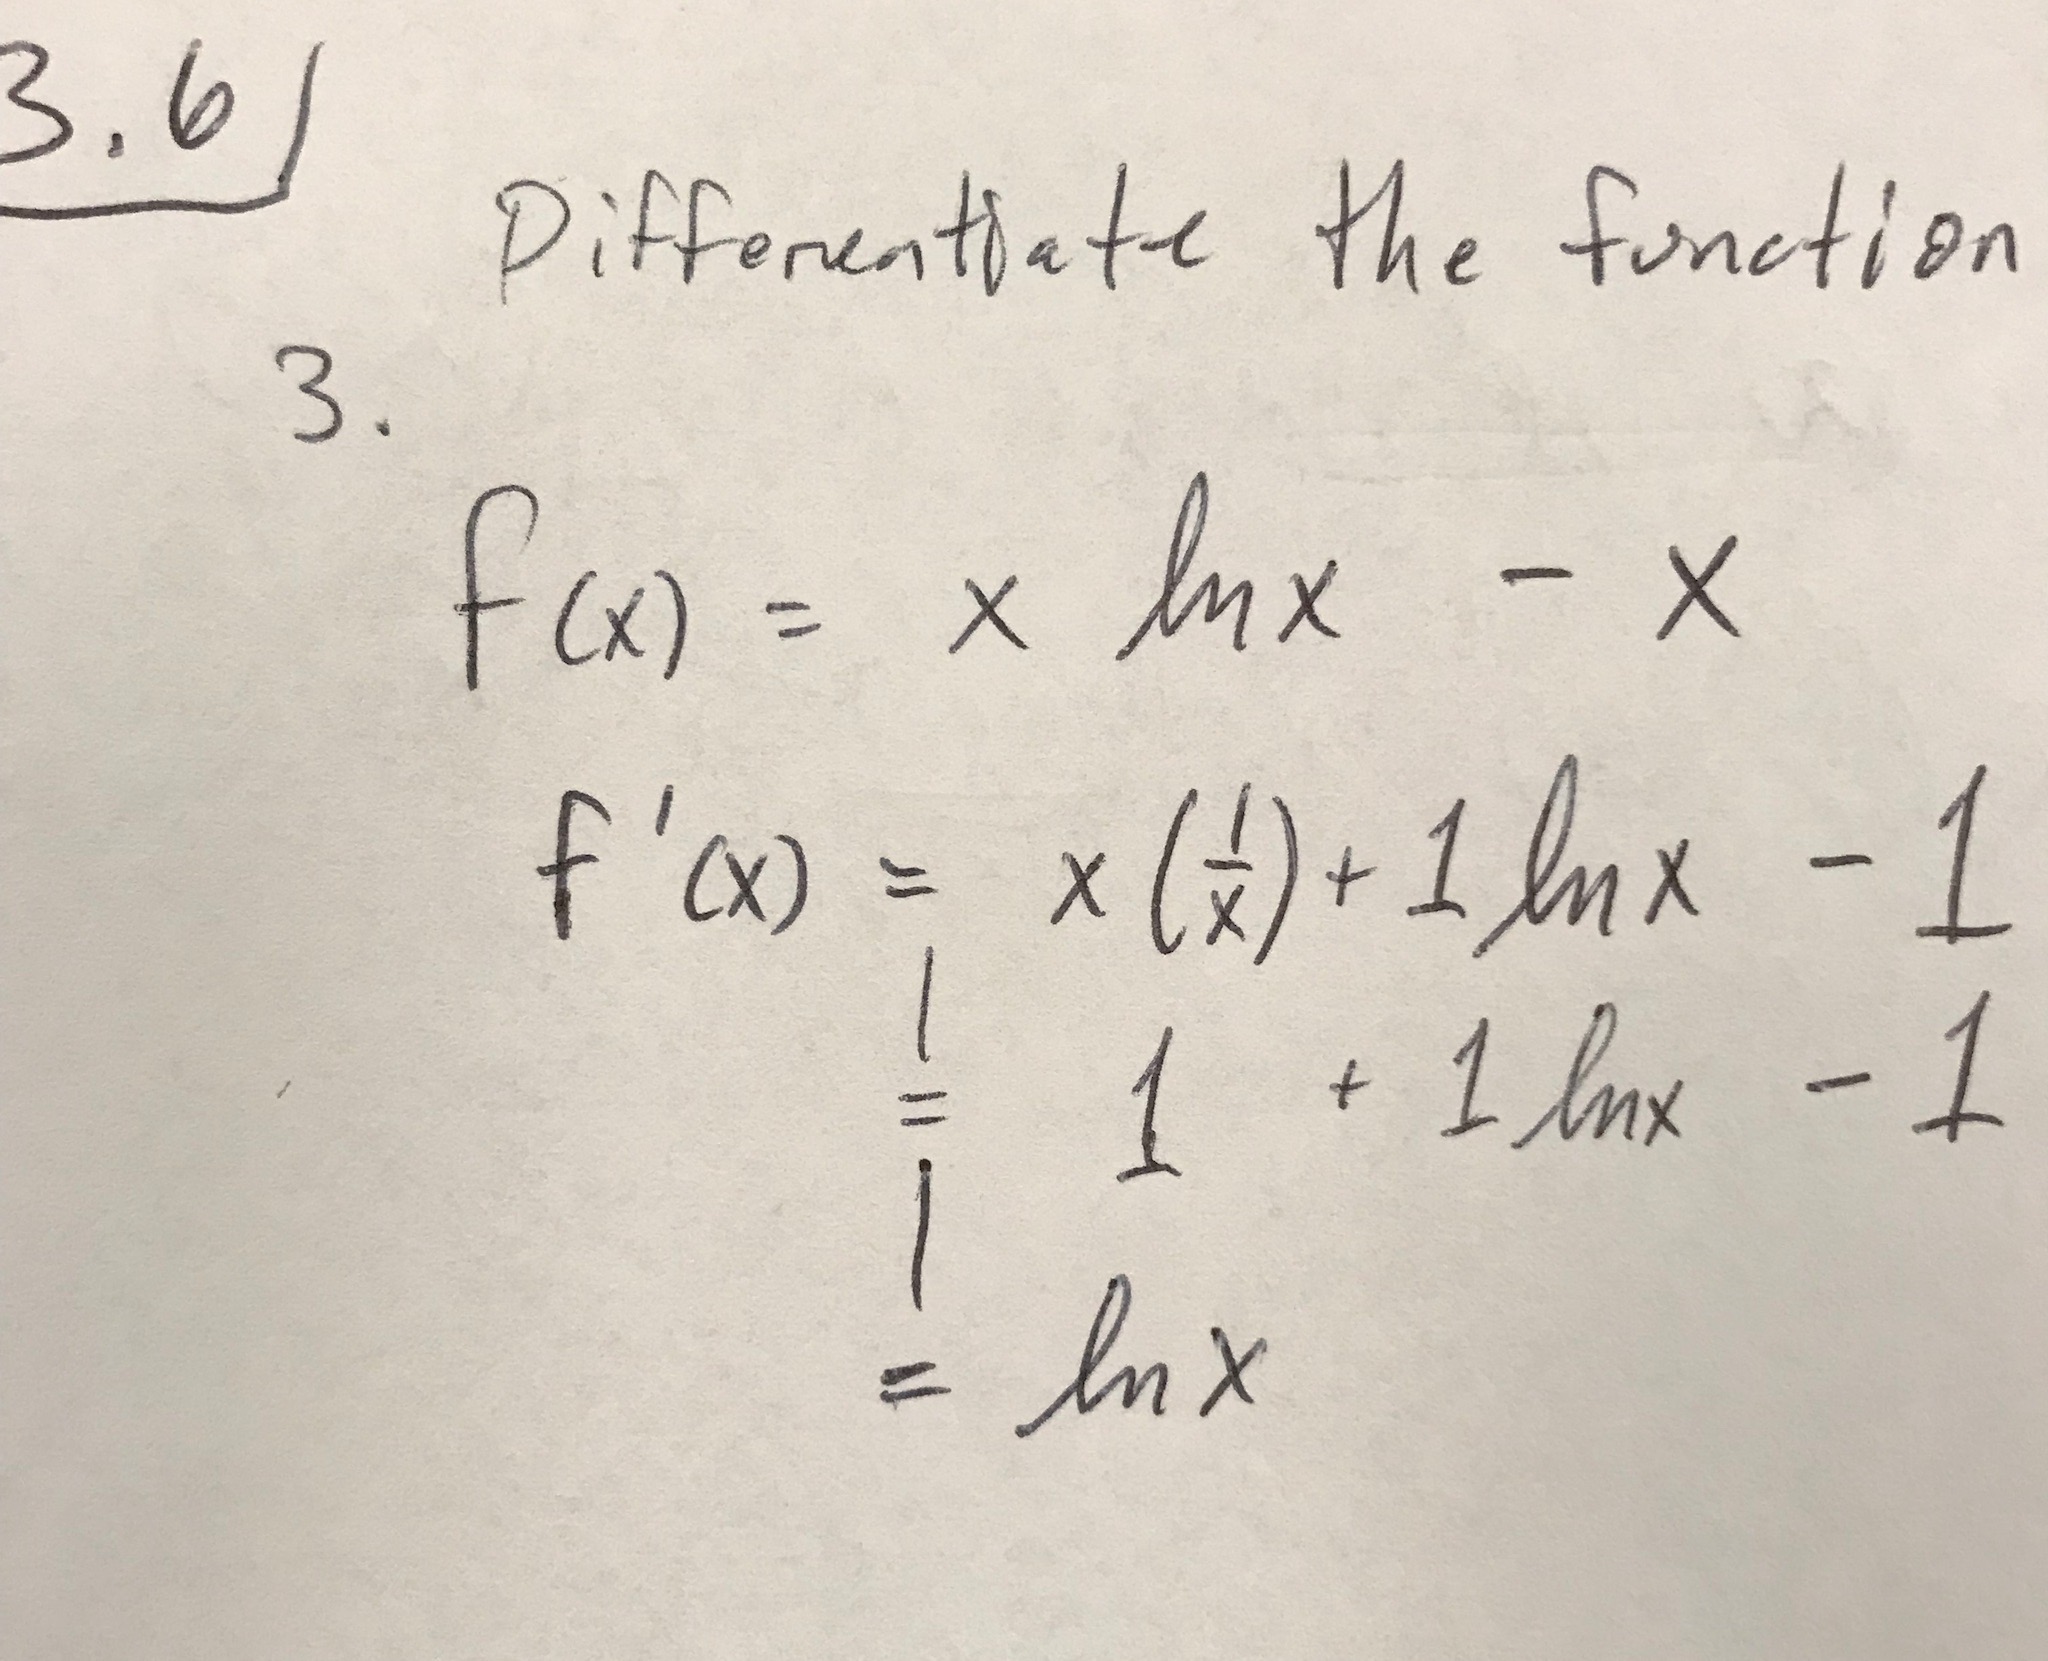 3.6
Differentiate the function
3.
f(x) = x ln x - x
f'(x) = x(1/x) + 1 ln x - 1
= 1 + 1 ln x - 1
= ln x